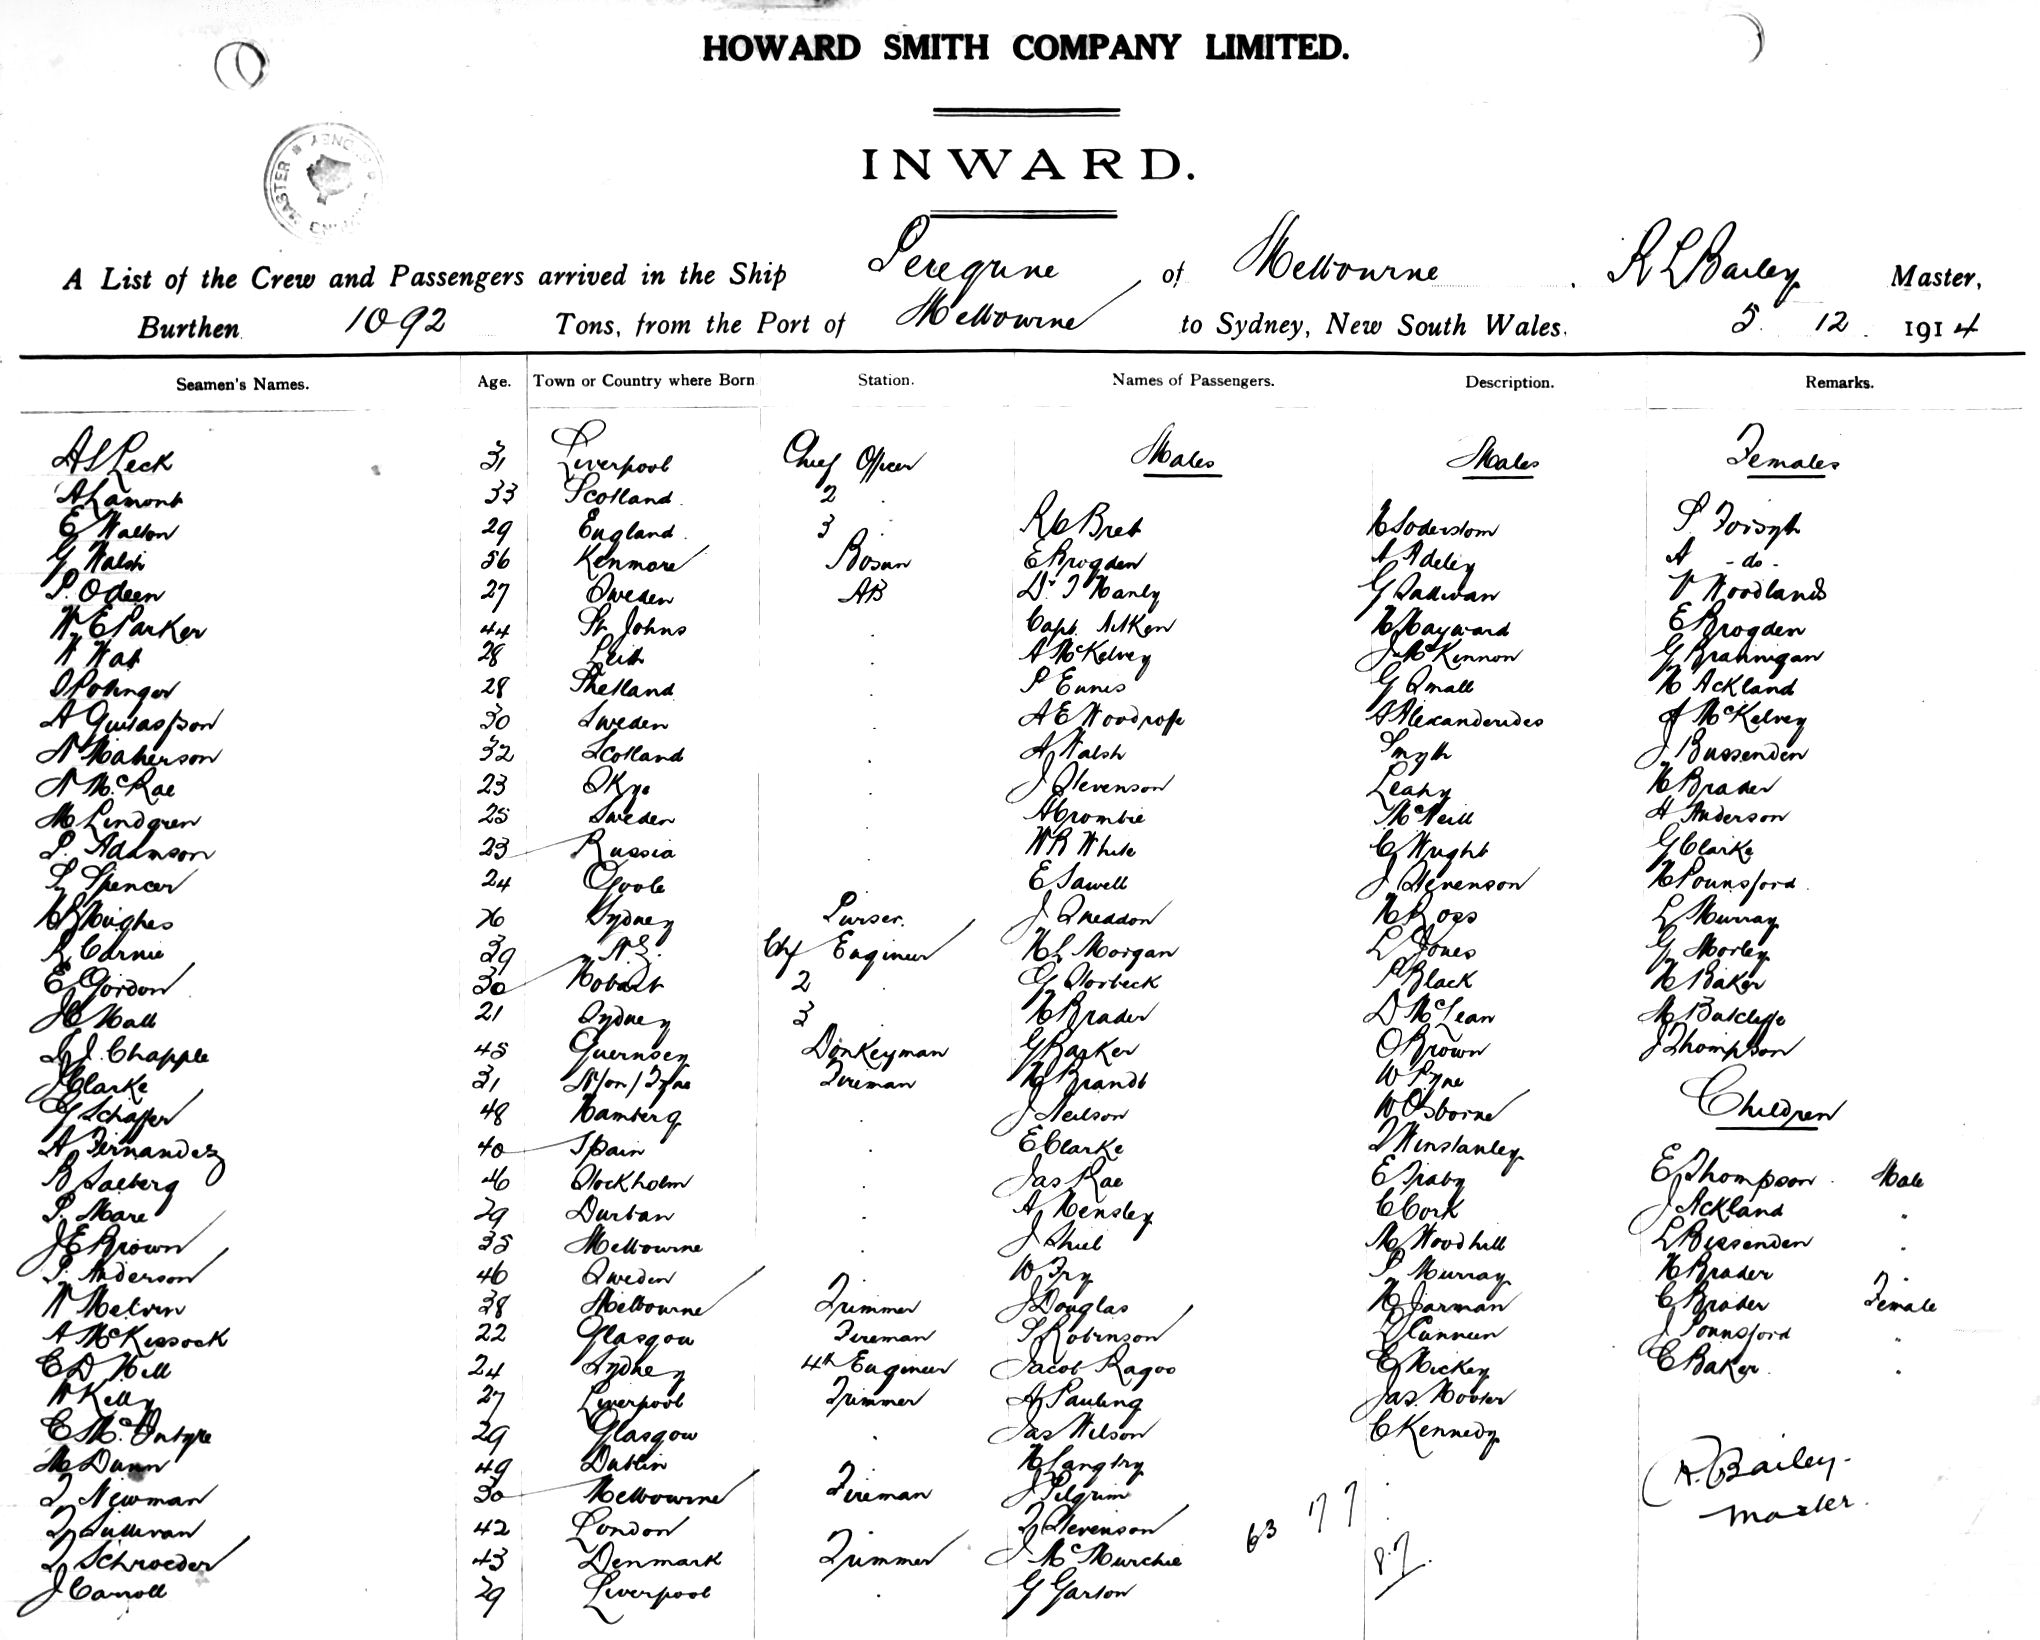 HOWARD SMITH COMPANY LIMITED.
INWARD.
A List of the Crew and Passengers arrived in the Ship Peregrine of Melbourne. R L Bailey Master,
Burthen 1092 Tons, from the Port of Melbourne to Sydney, New South Wales. 5. 12. 1914
Seamen's Names. Age. Town or Country where Born Station. Names of Passengers. Description. Remarks.
A S Peck 31 Liverpool Chief Officer Males Males Females
A Lamont 33 Scotland 2
E Walton 29 England 3 R C Bret H Soderstom S Forsyth
G Walsh 56 Kenmare Bosun E Brogden A Adeley A - do -
P. Odeen 27 Sweden AB Dr. T Hanly G Sullivan V Woodlands
W E Parker 44 St Johns Capt. Aitken H Hayward E Brogden
W Wat 28 Leith A McKelvey J McKinnon G Brannigan
28 Shetland P Ennis G Small H Ackland
A Gustafson 30 Sweden A E Woodroffe A Alexanderides A McKelvey
N Matherson 32 Scotland A Walsh Smyth J Bussenden
N McRae 23 Skye J Stevenson Leahy H Brader
M Lindgren 25 Sweden A Crombie McNeill A Anderson
P. Adamson 23 Russia W R White C Wright G Clarke
L Spencer 24 Goole E Sawell J Stevenson H Pounsford
H B Hughes 26 Sydney Purser. J Sneddon H Ross L Murray
R Carnie 39 N.S. Chf Engineer H L Morgan L Jones G Morley
E Gordon 30 Hobart 2 G Storbeck P Black H Baker
J C Hall 21 Sydney 3 H Brader D McLean M Butcliffe
L J. Chapple 45 Guernsey Donkeyman G Barker O Brown J Thompson
J Clarke 31 N/on/Tyne Fireman H Brandt W Pyne
G Schaffer 48 Hamberg J Neilson W Osborne Children
A Fernandez 40 Spain E Clarke T Winstanley
B Saeberg 46 Stockholm Jas Rae E Traby E Thompson Male
P. Mare 29 Durban A Hensley C Cork J Ackland "
J E Brown 35 Melbourne J Shiel M Woodhill L Bussenden "
P. Anderson 46 Sweden W Fry P Murray H Brader "
W Melvin 38 Melbourne Trimmer J Douglas H Jarman C Brader Female
A McKissock 22 Glasgow Fireman S Robinson L Cunneen J Pounsford "
C D Hill 24 Sydney 4th Engineer Jacob Ragoo E Hickey C Baker "
W Kelly 27 Liverpool Trimmer A Pauling Jas. Hooter
C McIntyre 29 Glasgow Jas Wilson C Kennedy
M Dunn 49 Dublin H Langtry R. Bailey.
T Newman 30 Melbourne Fireman J Pilgrim Master.
T Sullivan 42 London T Stevenson 63 77
T Schroeder 43 Denmark Trimmer J McMurchie 87.
J Carroll 29 Liverpool G Garton